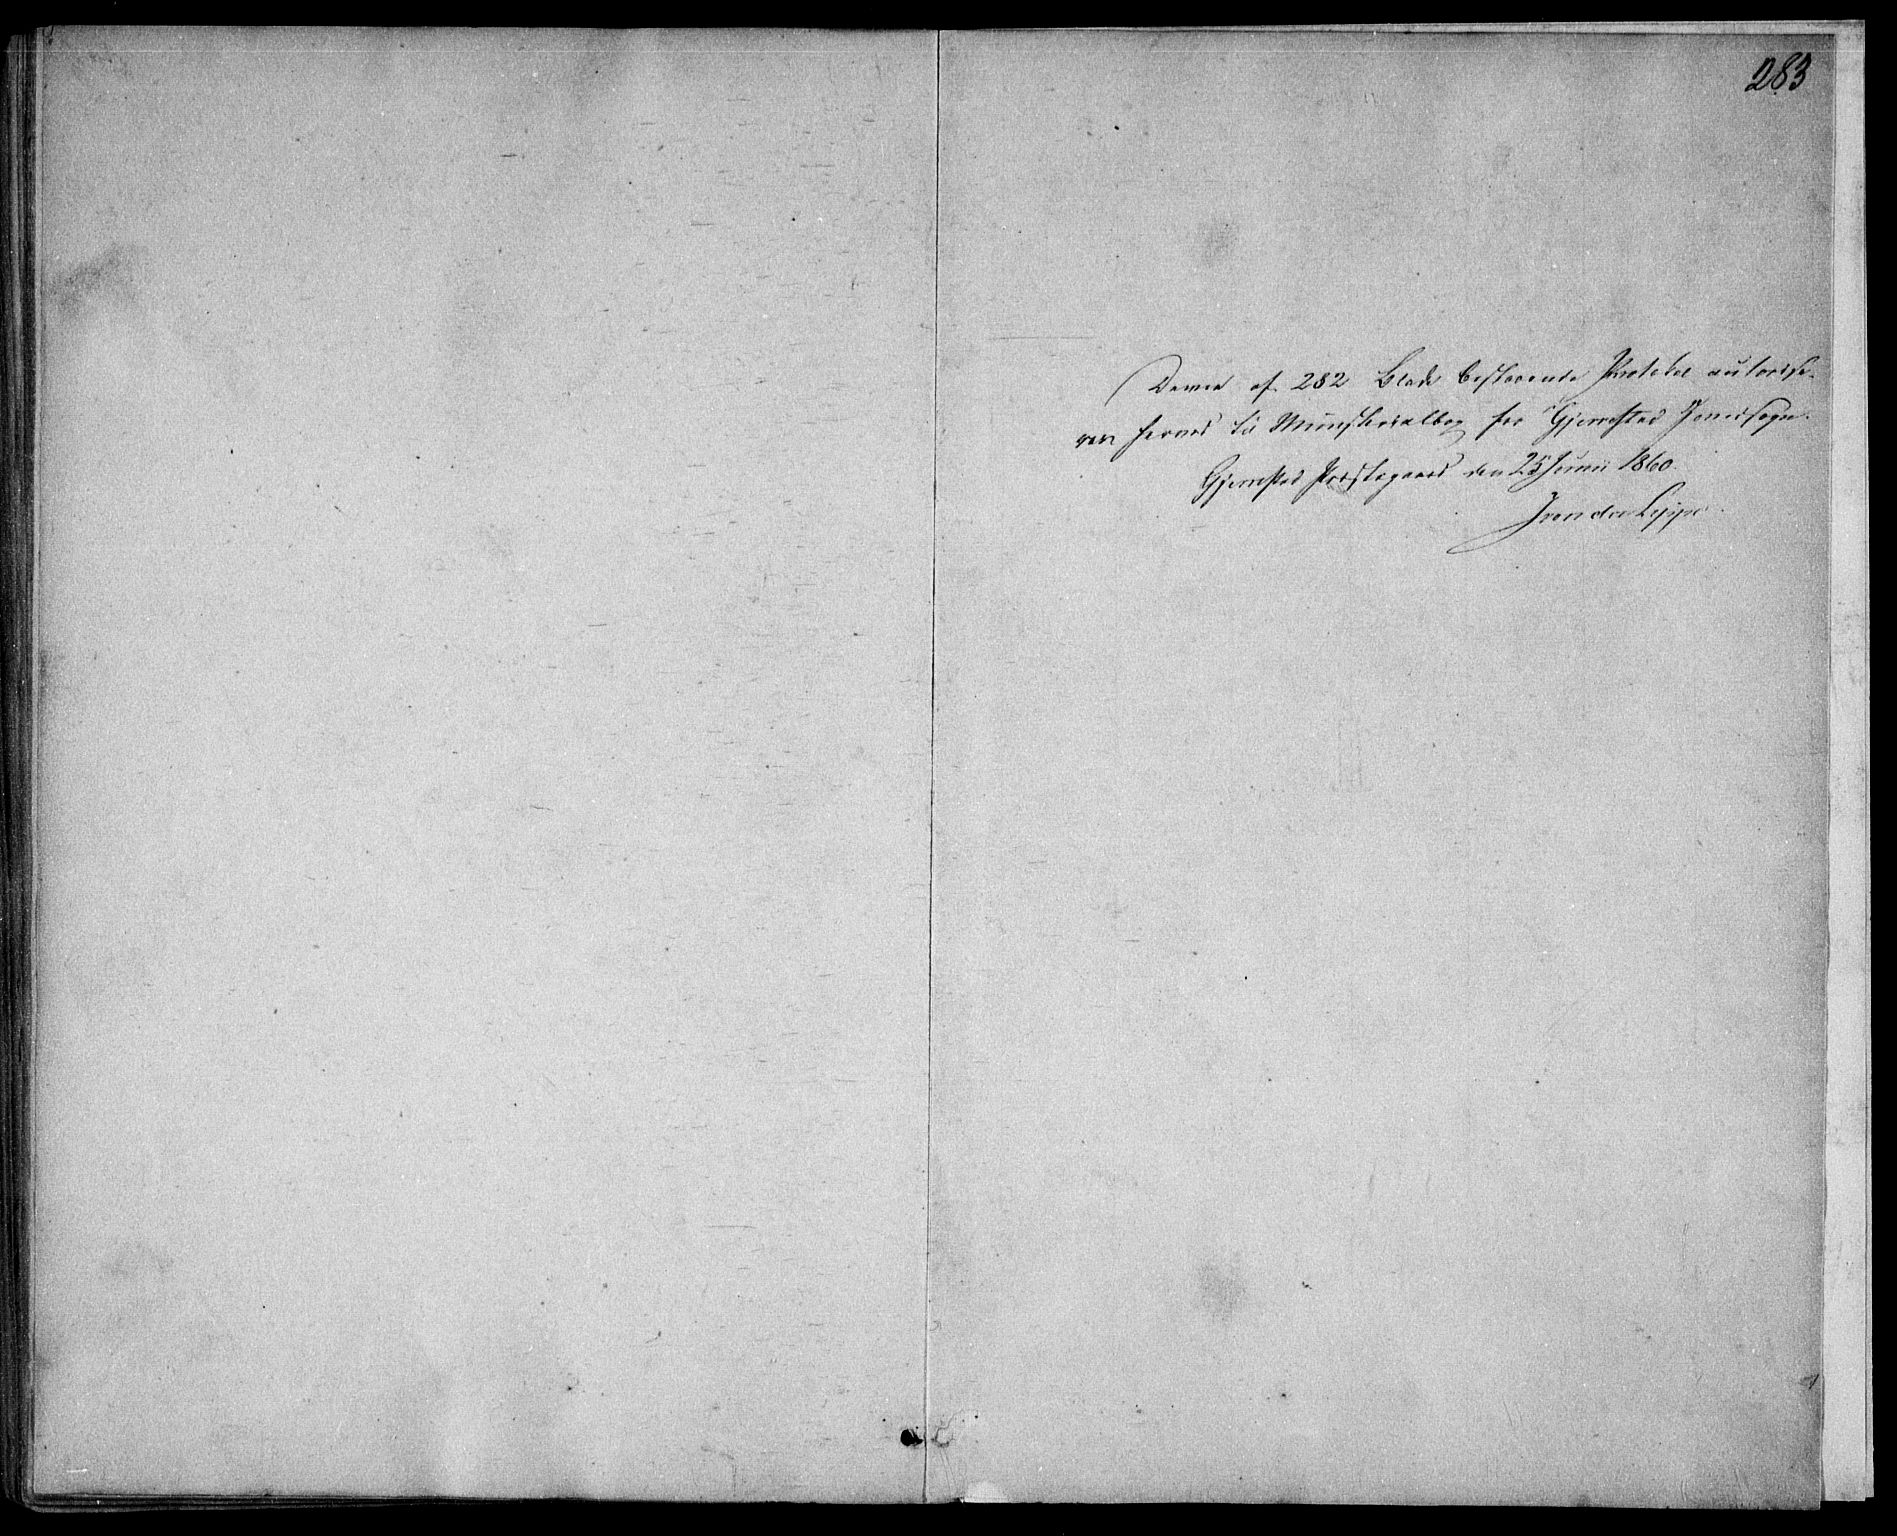 283
Denne af 282 Blade bestaaende Protokol autorise-
res herved til Ministerialbog for Gjerrestad Hovedsogn.
Gjerrestad Præstegaard den 25 Junii 1860.